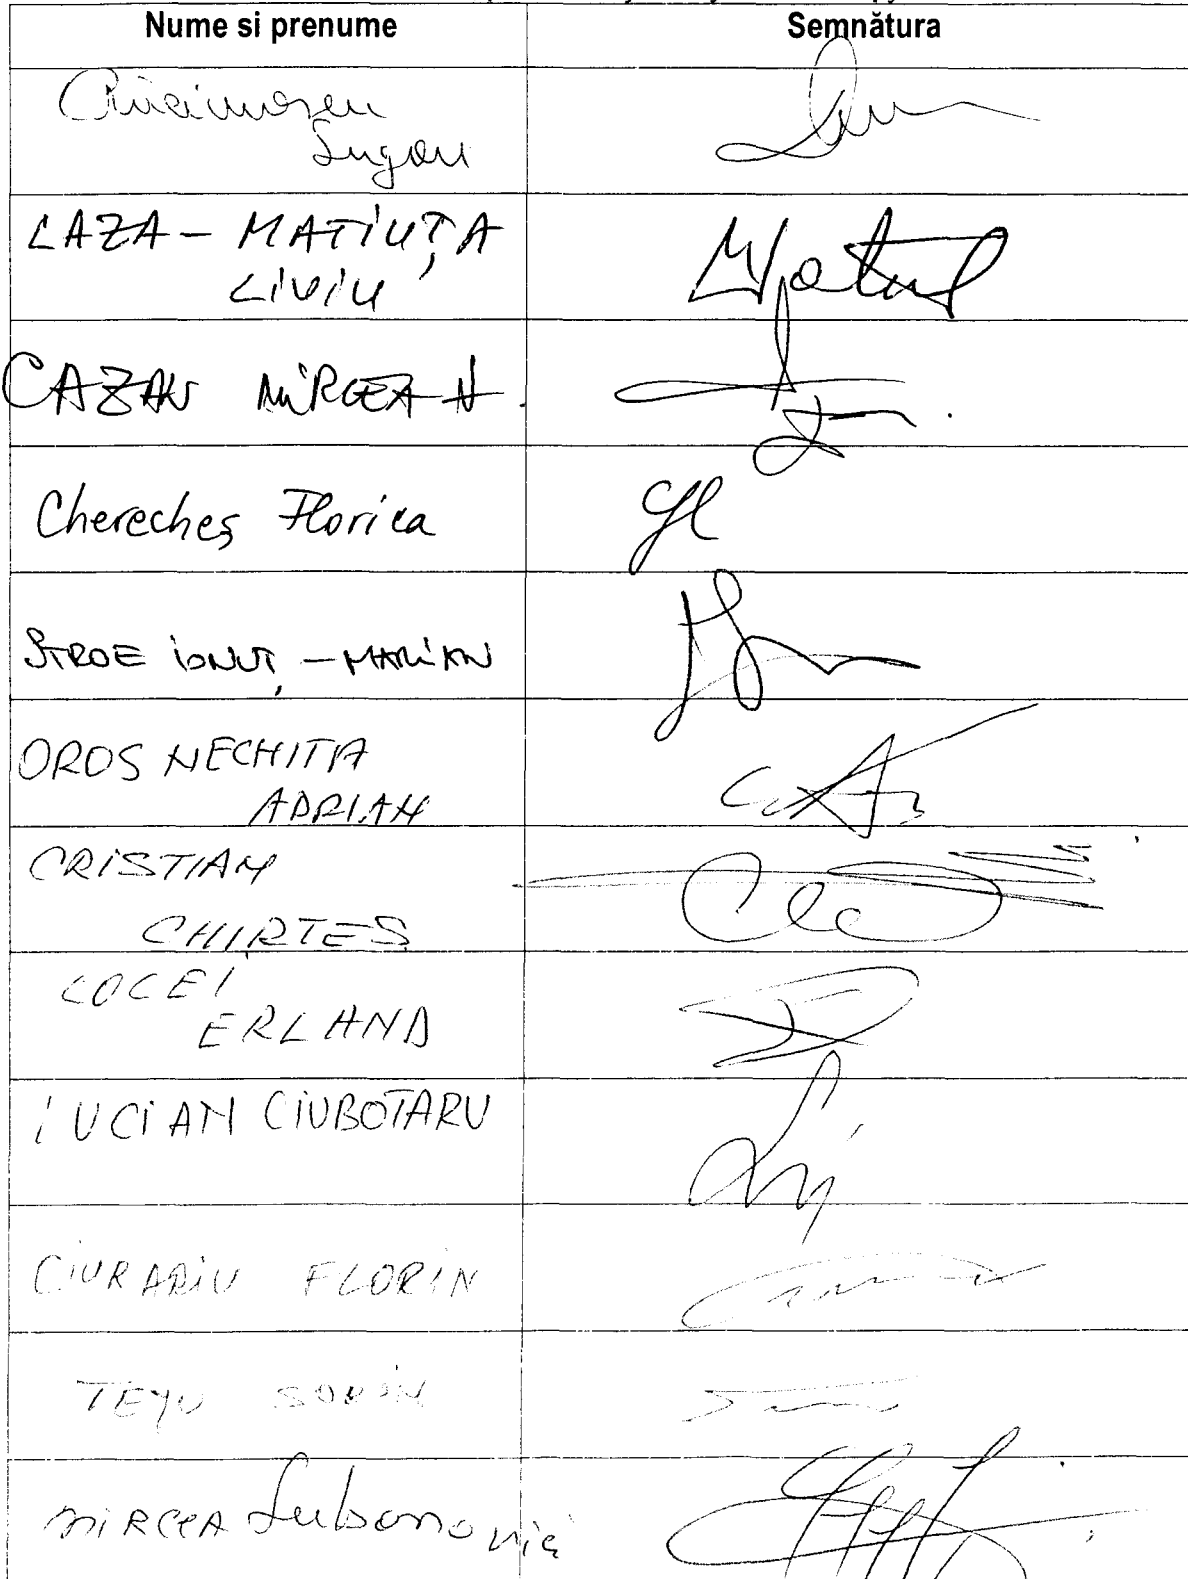 Nume si prenume Semnătura
LAZA - MATIUȚA
LIVIU
CAZAN MIRCEA N.
Chereches Florica
STROE IONUȚ - MARIAN
OROS NECHITA
ADRIAN
CRISTIAN
CHIRTES
COCEI
ERLAND
LUCIAN CIUBOTARU
CIURARIU FLORIN
SORIN
MIRCEA